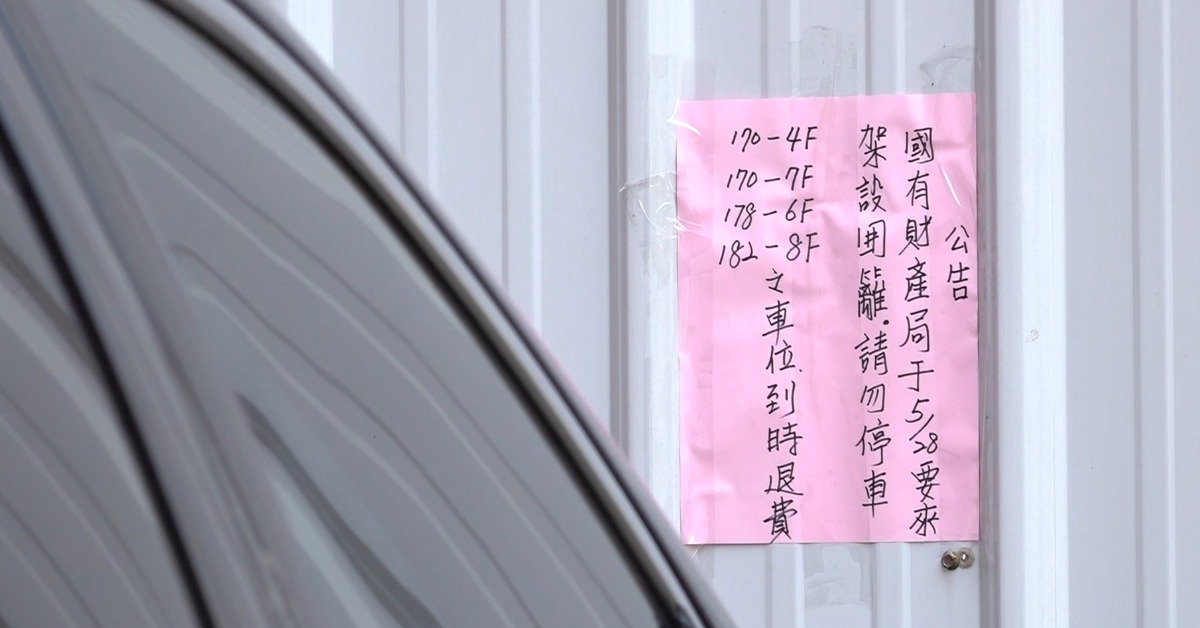 公告
國有財產局于5/28要來
架設围籬.請勿停車
170-4F
170-7F
178-6F
182-8F
之車位到時退費